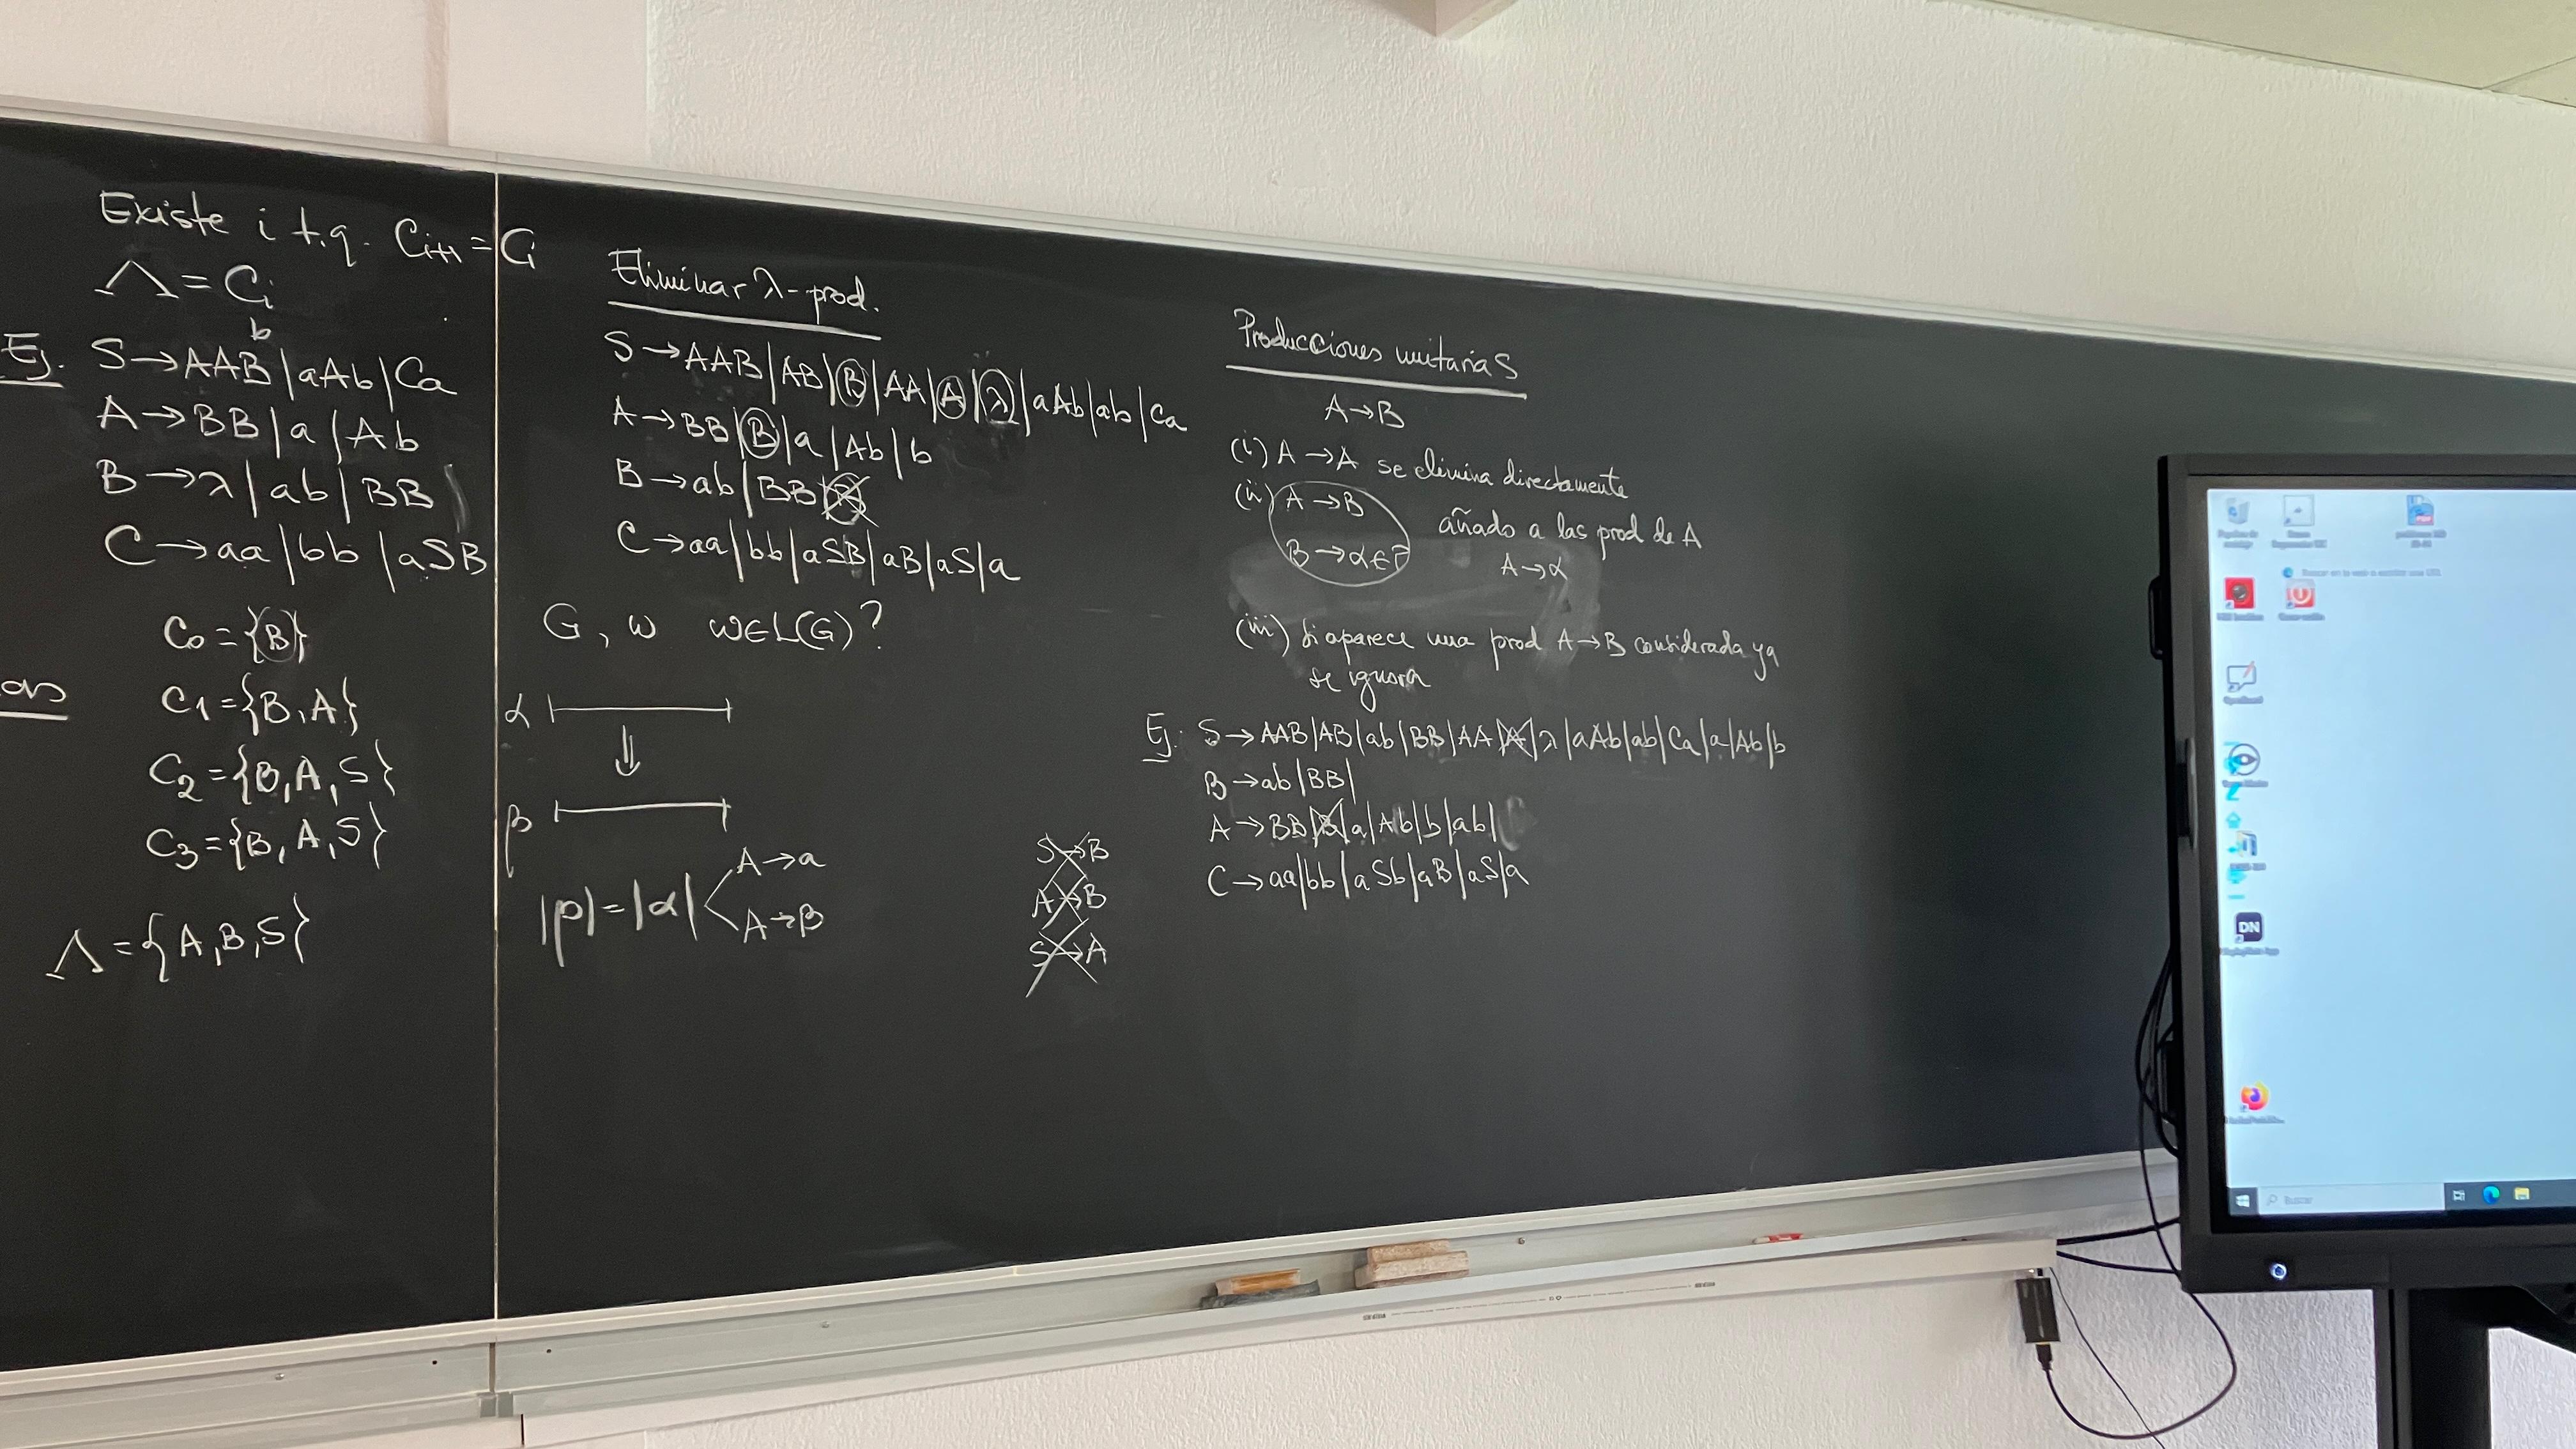 Existe i t.q. Ci+1 = Ci
Λ = Ci
b
Ej. S→AAB|aAb|Ca
A→BB|a|Ab
B→λ|ab|BB
C→aa|bb|aSB
C0={B}
as
C1={B,A}
C2={B,A,S}
C3={B,A,S}
Λ={A,B,S}
Eliminar λ-prod.
S→AAB|AB|B|AA|A|λ|aAb|ab|Ca
A→BB|B|a|Ab|b
B→ab|BB|B
C→aa|bb|aSB|aB|aS|a
G, w w∈L(G)?
α
⇓
β
|β|=|α| A→a
A→B
S→B
A→B
S→A
Producciones unitarias
A→B
(i) A→A se elimina directamente
(ii) A→B añado a las prod de A
B→α∈P A→α
(iii) Si aparece una prod A→B considerada ya
se ignora
Ej: S→AAB|AB|ab|BB|AA|A|λ|aAb|ab|Ca|a|Ab|b
B→ab|BB|
A→BB|B|a|Ab|b|ab|
C→aa|bb|aSb|aB|aS|a
DN
Buscar